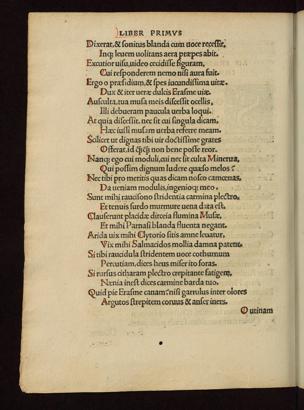 LIBER PRIMVS
Dixerat, & sonitus blanda cum uoce recessit,
Inq; leuem uolitans aera præpes abit.
Excutior uisu, uideo cecidisse figuram,
Cui responderem nemo nisi aura fuit.
Ergo o præsidium, & spes iucundissima uitæ,
Dux & iter ueræ dulcis Erasme uiæ.
Ausculta, tua musa meis discessit ocellis,
Illi debueram paucula uerba loqui.
At quia discessit, nec sit cui singula dicam,
Hæc iussi musam uerba referre meam.
Solicet ut dignas tibi uir doctissime grates
Offerat, id qđ non bene posse reor.
Nanq; ego cui moduli, cui nec sit culta Minerua,
Qui possim dignum ludere quæso melos?
Nec tibi pro meritis quas dicam nosco camenas,
Da ueniam modulis, ingenioq; meo.
Sunt mihi raucisono stridentia carmina plectro,
Et tenuis surdo murmure uena data est.
Clauserunt placidæ dirceia flumina Musæ,
Et mihi Parnasi blanda fluenta negant.
Arida uix mihi Clytorio sitis amne leuatur,
Vix mihi Salmacidos mollia damna patent.
Si tibi raucidula stridentem uoce cothurnum
Percutiam, dices heus miser ito foras.
Si rursus citharam plectro crepitante fatigem,
Nænia inest dices carmine barda tuo.
Quid pie Erasme canam? nisi garrulus inter olores
Argutos strepitem coruus & anser iners.
O utinam